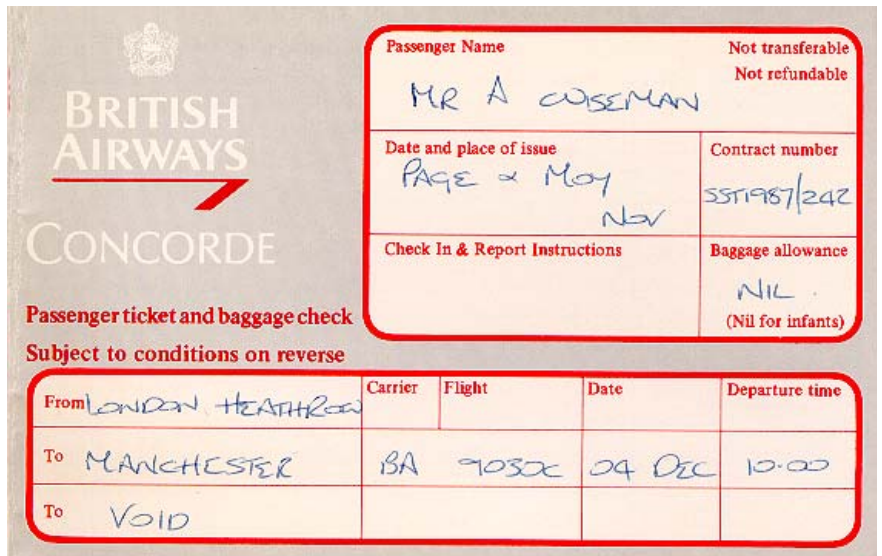 BRITISH
AIRWAYS
CONCORDE
Passenger ticket and baggage check
Subject to conditions on reverse
Passenger Name
Not transferable
Not refundable
MR A WISEMAN
Date and place of issue
PAGE & MOY
NOV
Contract number
SST1987/242
Check In & Report Instructions
Baggage allowance
NIL
(Nil for infants)
From LONDON HEATHROW
Carrier Flight Date Departure time
To MANCHESTER BA 9030C 04 DEC 10.00
To VOID